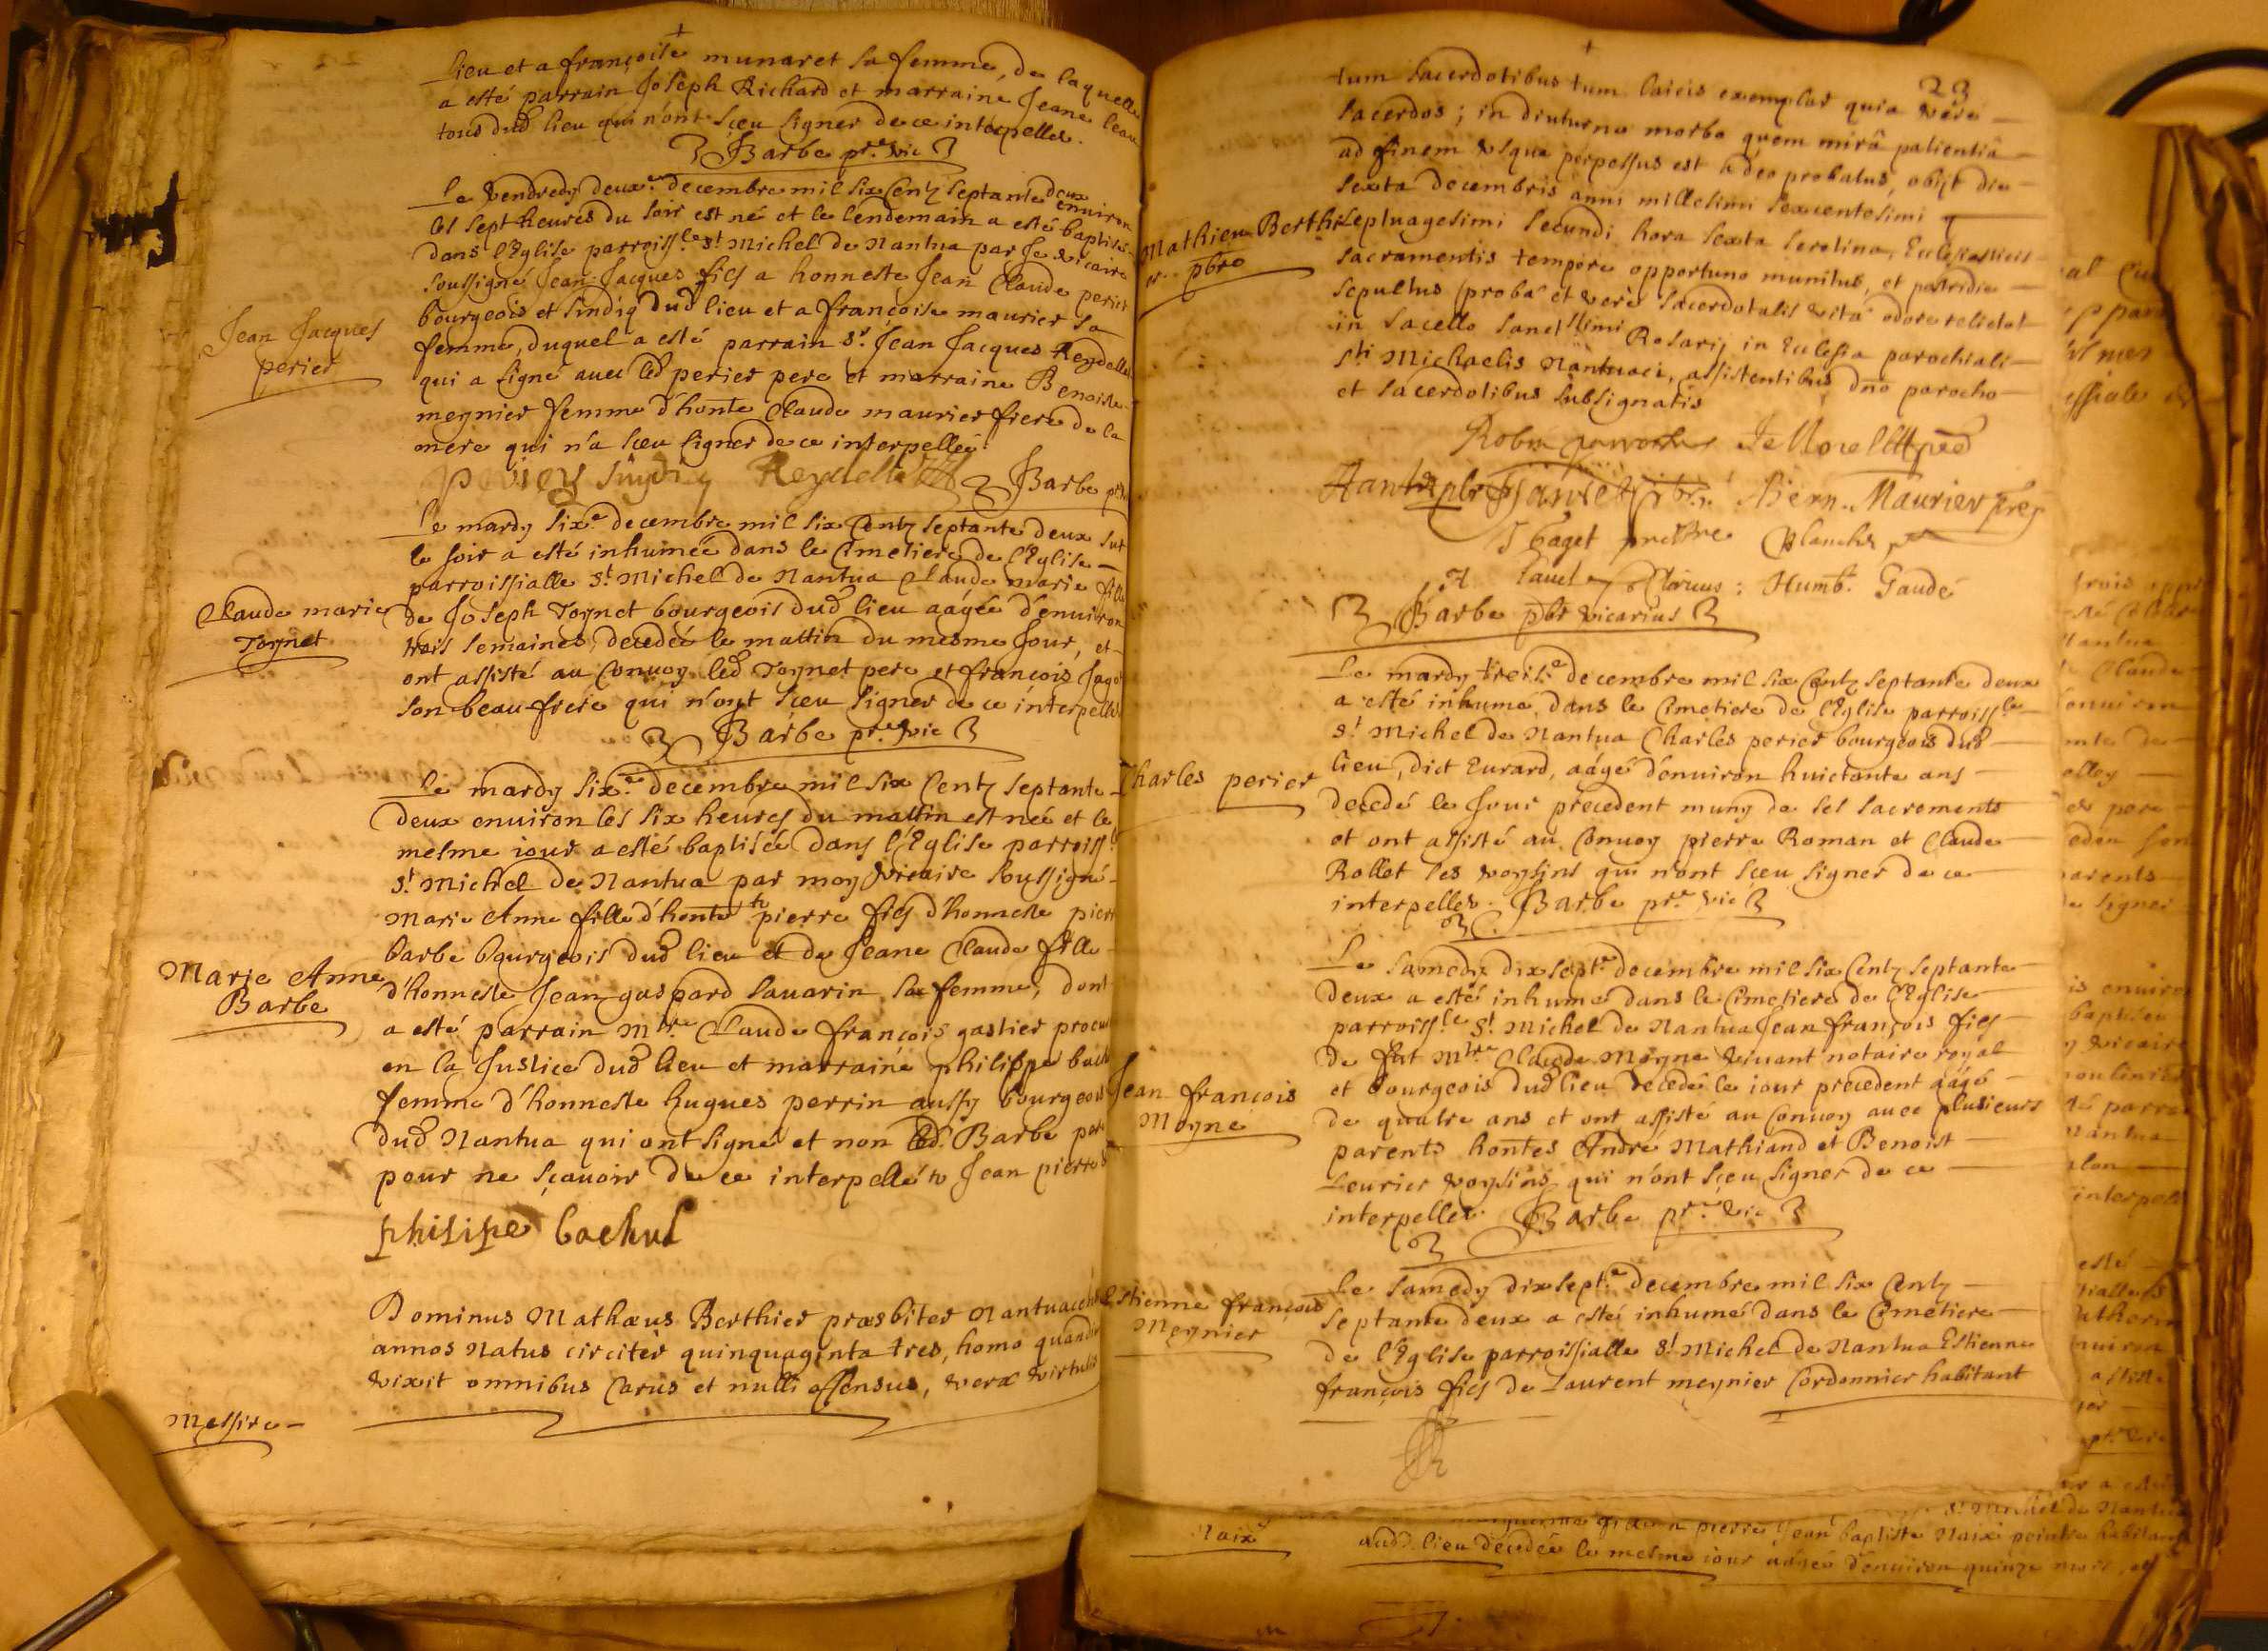 lieu et a françoise munaret sa femme, de laquelle
a esté parrain Joseph Richard et marraine Jeane
tous dud lieu qui n'ont sçeu signer de ce interpelles.
Barbe pre vic
Le vendredy deuxe decembre mil six Centz septante deux environ
les sept heures du soir est né et le lendemain a esté baptisé
dans l'Eglise parroissle st Michel de Nantua par Je vicaire
soussigné Jean Jacques fils a honneste Jean Claude perier
bourgeois et sindiq dud lieu et a françoise maurier sa
femme, duquel a esté parrain sr. Jean Jacques Reydellet
qui a signé avec led perier pere et marraine Benoiste
meynier femme d'honte Claude maurier frere de la
mere qui n'a sçeu signer de ce interpellée.
Jean Jacques
perier
Reydellet Barbe pre
Le mardy sixe decembre mil six Centz septante deux sur
le soir a esté inhumée dans le Cimetiere de l'Eglise
parroissialle st Michel de Nantua Claude marie fille
de Joseph Toynet bourgeois dud lieu aagée d'environ
trois semaines, decedée le mattin du mesme Jour, et
ont assisté au Convoy led Toynet pere et françois Jagot
son beau frere qui n'ont sçeu signer de ce interpelles
Claude marie
Toynet
Barbe pre vic
Le mardy sixe decembre mil six Centz septante
deux environ les six heures du mattin est née et le
mesme iour a esté baptisée dans l'Eglise parroissle
st Michel de Nantua par moy vicaire soussigné
Marie Anne fille d'honte pierre fils d'honneste pierre
barbe bourgeois dud lieu et de Jeane Claude fille
d'honneste Jean gaspard Savarin sa femme, dont
a esté parrain Mtre Claude françois gastier procur
en la Justice dud lieu et marraine philippe bachu
femme d'honneste hugues perrin aussy bourgeois
dud Nantua qui ont signé et non led. Barbe pere
pour ne sçavoir de ce interpellé Jean pierre
Marie Anne
Barbe
philipe bachut
Dominus Mathæus Berthier præsbiter Nantuacensis
annos natus circiter quinquaginta tres, homo quandiu
vixit omnibus carus et nulli offensus, veræ virtutis
Messire
23
tum sacerdotibus tum laicis exemplar quia vere
sacerdos; in diuturno morbo quem mirâ patientiâ
ad finem vsque perpessus est adeo probatus, obijt die
sexta decembris anni millesimi sexcentesimi
septuagesimi secundi hora sexta serotina, Ecclesiasticis
sacramentis tempore opportuno munitus, et postridie
sepultus (proba et verè sacerdotalis vita odore relicto)
in sacello sanctissimi Rosarij in Ecclesia parochiali
sti Michaelis Nantuaci, assistentibus dno parocho
et sacerdotibus subsignatis
Mathieu Berthier
pbre
Robin parrochus
Bern. Maurier
prebtre
Humb. Gaudé
Barbe pbr vicarius
Le mardy treize decembre mil six Centz septante deux
a esté inhumé dans le Cimetiere de l'Eglise parroissle
st Michel de Nantua Charles perier bourgeois dud
lieu, dict Eurard, aagé d'environ huictante ans
decedé le Jour precedent muny de ses sacrements
et ont assisté au Convoy pierre Roman et Claude
Rollet ses voysins qui n'ont sçeu signer de ce
interpelles. Barbe pre vic
Charles perier
Le samedy dix septe decembre mil six Centz septante
deux a esté inhumé dans le Cimetiere de l'Eglise
parroissle st Michel de Nantua Jean françois fils
de fut Mtre Claude Moyne vivant notaire royal
et bourgeois dud lieu decedé le iour precedent aagé
de quatre ans et ont assisté au Convoy avec plusieurs
parents hontes André Mathiand et Benoist
Leurier voysins qui n'ont sçeu signer de ce
interpelles. Barbe pre vic
Jean françois
Moyne
Le samedy dix septe decembre mil six Centz
septante deux a esté inhumé dans le Cimetiere
de l'Eglise parroissialle st Michel de Nantua Estienne
françois fils de Laurent meynier Cordonnier habitant
Estienne françois
Meynier
st Michel de Nantua
pierre Jean baptiste Naix peintre habitant
aud. lieu decedée le mesme iour aagée d'environ quinze mois, et
Naix